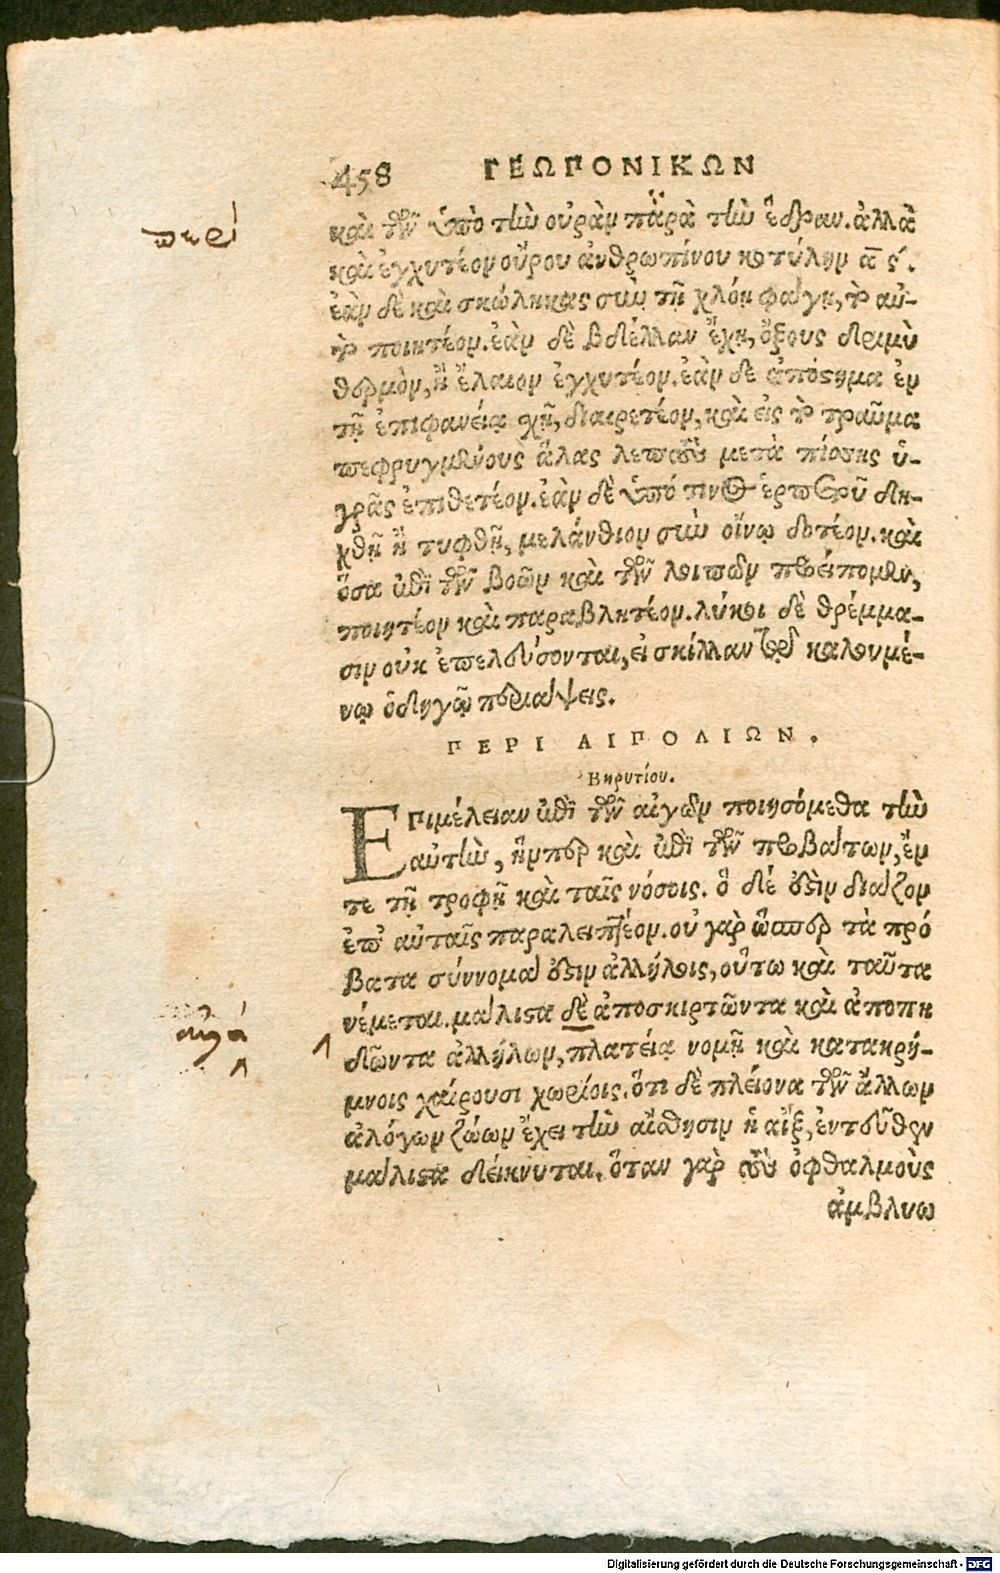 458 ΓΕΩΠΟΝΙΚΩΝ
περὶ
καὶ τῶν ὑπὸ τὴν οὐρὰν παρὰ τὴν ἕδραν. ἀλλὰ
καὶ ἐγχυτέον οὔρου ἀνθρωπίνου κοτύλην α ς´.
ἐὰν δὲ καὶ σκώληκας σὺν τῇ χλόῃ φάγῃ, τὸ αὐ-
τὸ ποιητέον. ἐὰν δὲ βδέλλαν ἔχῃ, ὄξους δριμὺ
θερμὸν, ἢ ἔλαιον ἐγχυτέον. ἐὰν δὲ ἀπόστημα ἐν
τῇ ἐπιφανείᾳ σχῇ, διαιρετέον, καὶ εἰς τὸ τραῦμα
πεφρυγμένους ἅλας λεπτοὺς μετὰ πίσσης ὑ-
γρᾶς ἐπιθετέον. ἐὰν δὲ ὑπό τινος ἑρπετοῦ δη-
χθῇ ἢ τυφθῇ, μελάνθιον σὺν οἴνῳ δοτέον. καὶ
ὅσα ἐπὶ τῶν βοῶν καὶ τῶν λοιπῶν προείπομεν,
ποιητέον καὶ παραβλητέον. λύκοι δὲ θρέμμα-
σιν οὐκ ἐπελεύσονται, εἰ σκίλλαν τῷ καλουμέ-
νῳ ὁδηγῷ περιάψεις.
ΠΕΡΙ ΑΙΠΟΛΙΩΝ.
Βηρυτίου.
ΕΠιμέλειαν ἐπὶ τῶν αἰγῶν ποιησόμεθα τὴν
αὐτὴν, ἥνπερ καὶ ἐπὶ τῶν προβάτων, ἔν
τε τῇ τροφῇ καὶ ταῖς νόσοις. ὃ δέ ἐστιν διάζον
ἐπ' αὐταῖς παραλειπτέον. οὐ γὰρ ὥσπερ τὰ πρό
βατα σύννομά ἐστιν ἀλλήλοις, οὕτω καὶ ταῦτα
νέμεται. μάλιστα δὲ ἀποσκιρτῶντα καὶ ἀποπη
δῶντα ἀλλήλων, πλατείᾳ νομῇ καὶ κατακρή-
μνοις χαίρουσι χωρίοις. ὅτι δὲ πλείονα τῶν ἄλλων
ἀλόγων ζώων ἔχει τὴν αἴσθησιν ἡ αἲξ, ἐντεῦθεν
μάλιστα δείκνυται. ὅταν γὰρ τοὺς ὀφθαλμοὺς
ἀμβλυω
Digitalisierung gefördert durch die Deutsche Forschungsgemeinschaft - DFG